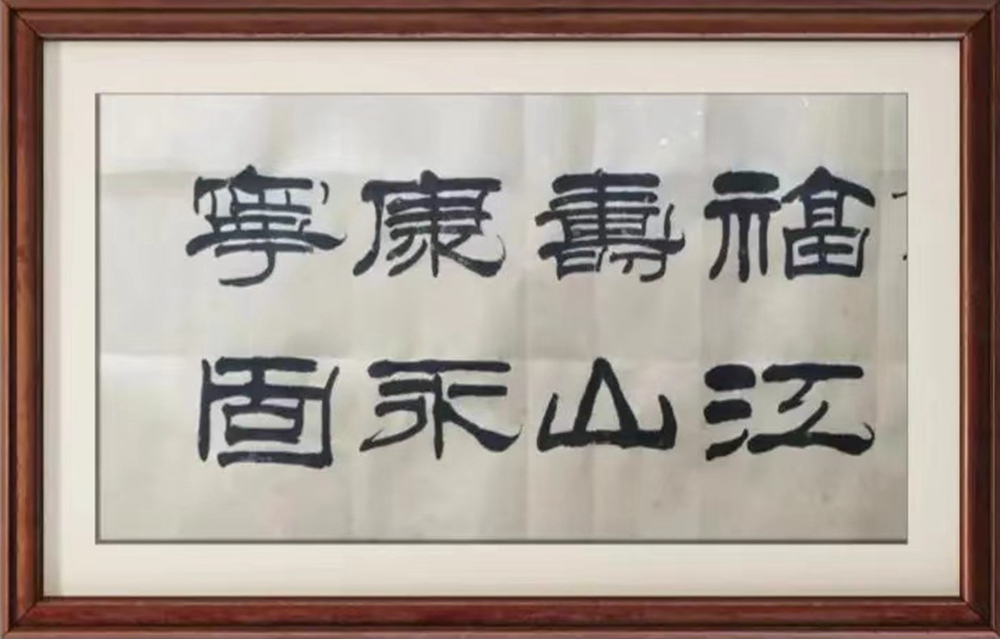 福壽康寧
江山永固